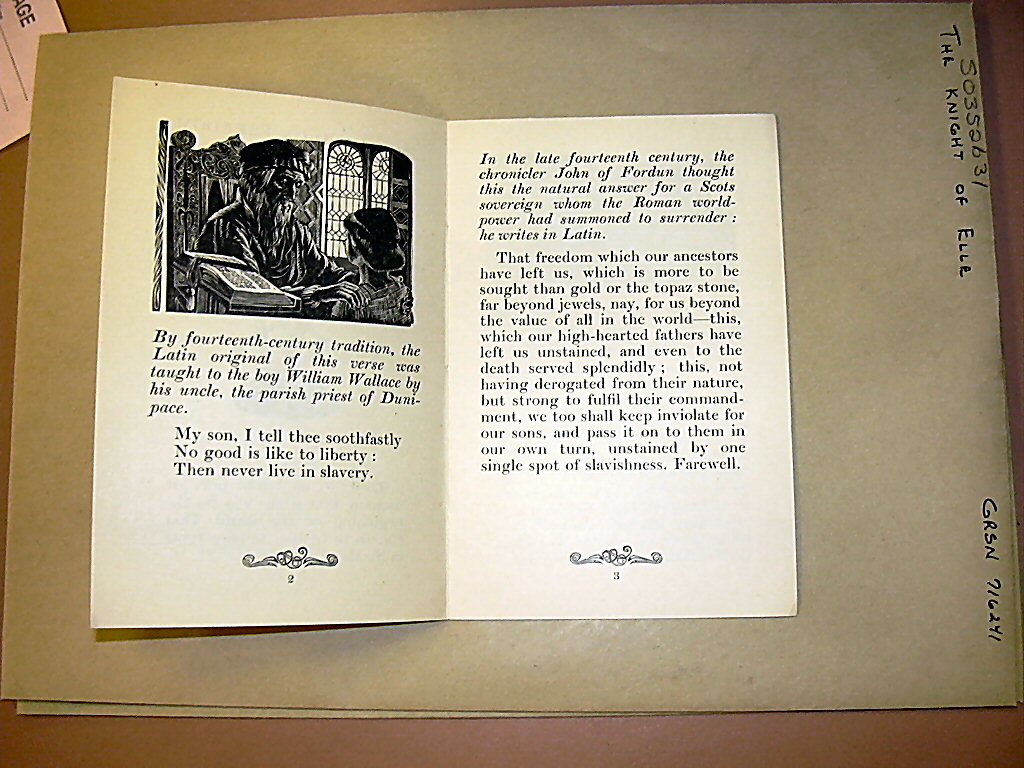 AGE
By fourteenth-century tradition, the
Latin original of this verse was
taught to the boy William Wallace by
his uncle, the parish priest of Duni-
pace.
My son, I tell thee soothfastly
No good is like to liberty :
Then never live in slavery.
2
In the late fourteenth century, the
chronicler John of Fordun thought
this the natural answer for a Scots
sovereign whom the Roman world-
power had summoned to surrender :
he writes in Latin.
That freedom which our ancestors
have left us, which is more to be
sought than gold or the topaz stone,
far beyond jewels, nay, for us beyond
the value of all in the world—this,
which our high-hearted fathers have
left us unstained, and even to the
death served splendidly ; this, not
having derogated from their nature,
but strong to fulfil their command-
ment, we too shall keep inviolate for
our sons, and pass it on to them in
our own turn, unstained by one
single spot of slavishness. Farewell.
3
50352631
THE KNIGHT OF ELLE
GRSN 716241